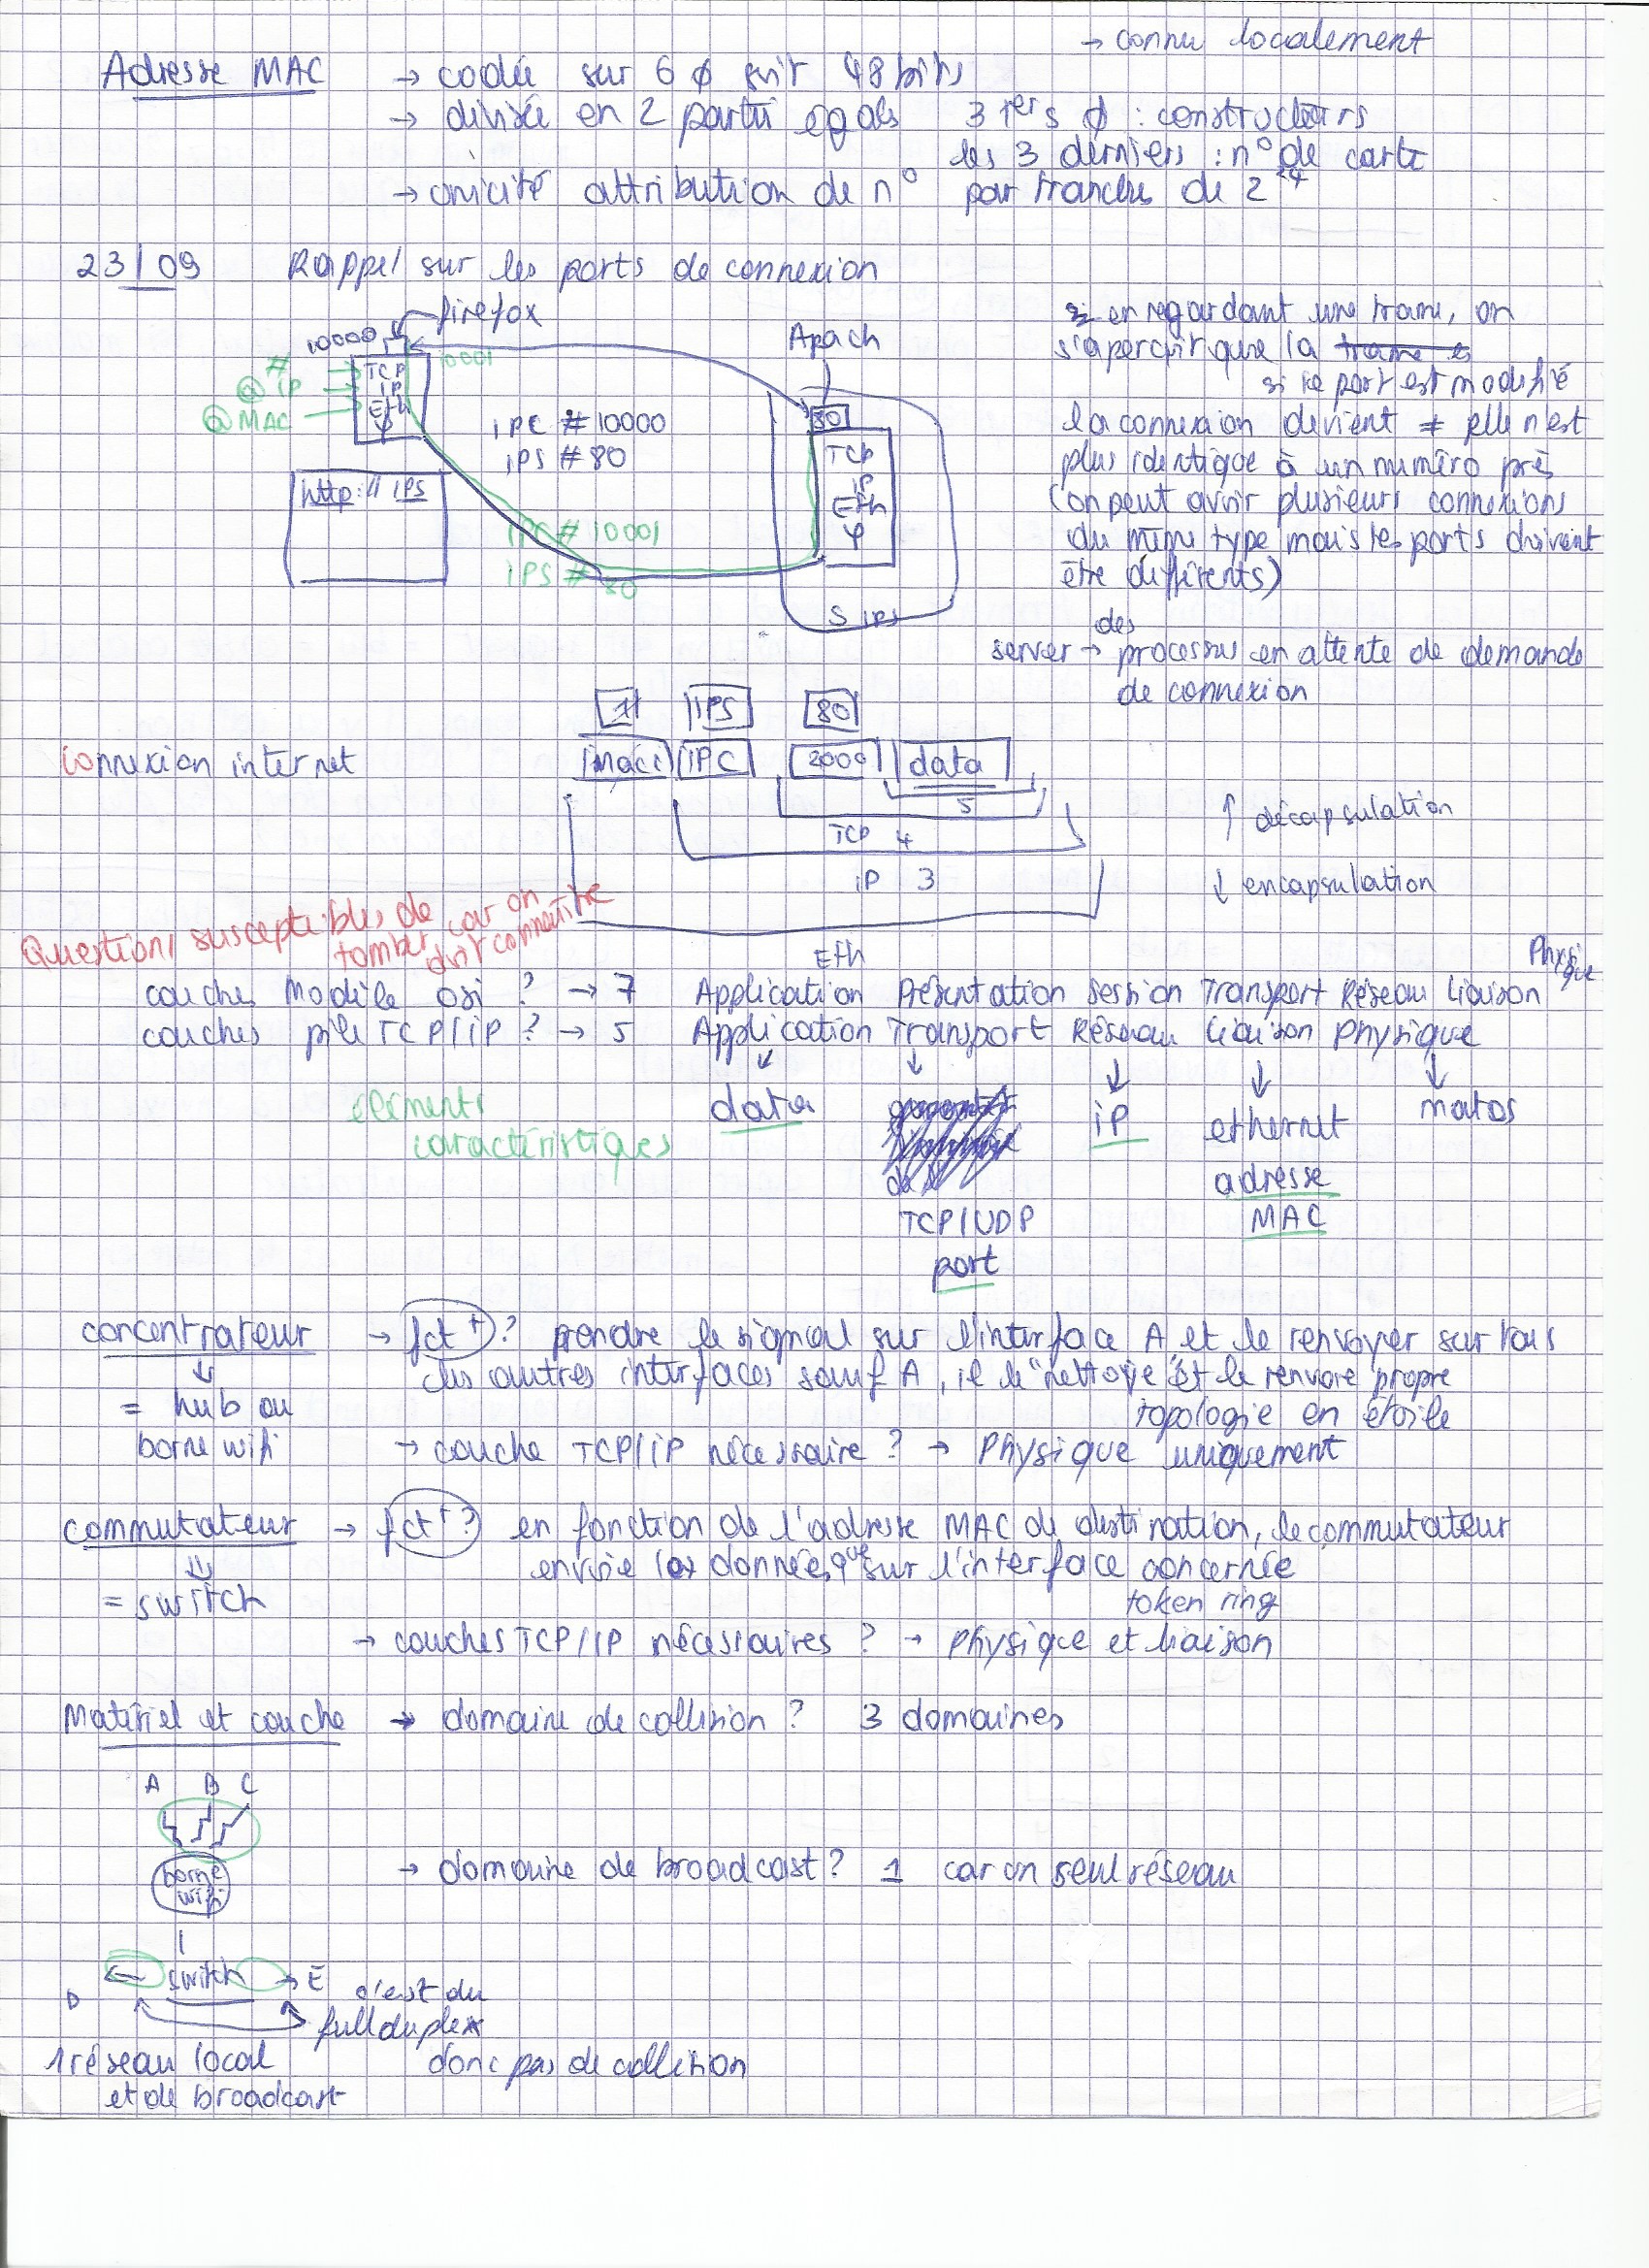 → connu localement
Adresse MAC → codée sur 6 φ soit 48 bits
→ divisée en 2 partu egals 3 1ers φ : constructeurs
les 3 derniers : n° de carte
→ unicité attribution de n° par tranches de 2^24
23/09 Rappel sur les ports de connexion
firefox
10000
10001
#
@ iP
@ MAC
TCP
iP
Eth
φ
Apach
80
TCP
iP
Eth
φ
S iPS
iPC # 10000
iPS # 80
http:// iPS
iPC # 10001
iPS # 80
en regardant une trame, on
s'aperçoit que la trame
si le port est modifié
la connexion devient ≠ elle n'est
plus identique à un numéro près
(on peut avoir plusieurs connexions
du même type mais les ports doivent
être différents)
server → des processus en attente de demande
de connexion
iPS 80
Connexion internet
iPC 2000 data
5
TCP 4
iP 3
Eth
↑ décapsulation
↓ encapsulation
Questions susceptibles de tomber car on doit connaître
couches modèle osi ? → 7 Application Présentation Session Transport Réseau Liaison Physique
couches pile TCP/iP ? → 5 Application Transport Réseau Liaison Physique
éléments
caractéristiques
data
TCP/UDP
port
iP
ethernet
adresse
MAC
matos
concentrateur → fct+ ? prendre le signal sur l'interface A et le renvoyer sur tous
les autres interfaces sauf A, il le "nettoye" et le renvoie propre
= hub ou topologie en étoile
borne wifi → couche TCP/iP nécessaire ? → Physique uniquement
commutateur → fct+ ? en fonction de l'adresse MAC de destination, le commutateur
envoie les données que sur l'interface concernée
= switch token ring
→ couches TCP/IP nécessaires ? → Physique et liaison
Matériel et couche → domaine de collision ? 3 domaines
A B C
borne
wifi
→ domaine de broadcast ? 1 car on seul réseau
← switch → E
D
c'est du
full duplex
donc pas de collision
1 réseau local
et de broadcast